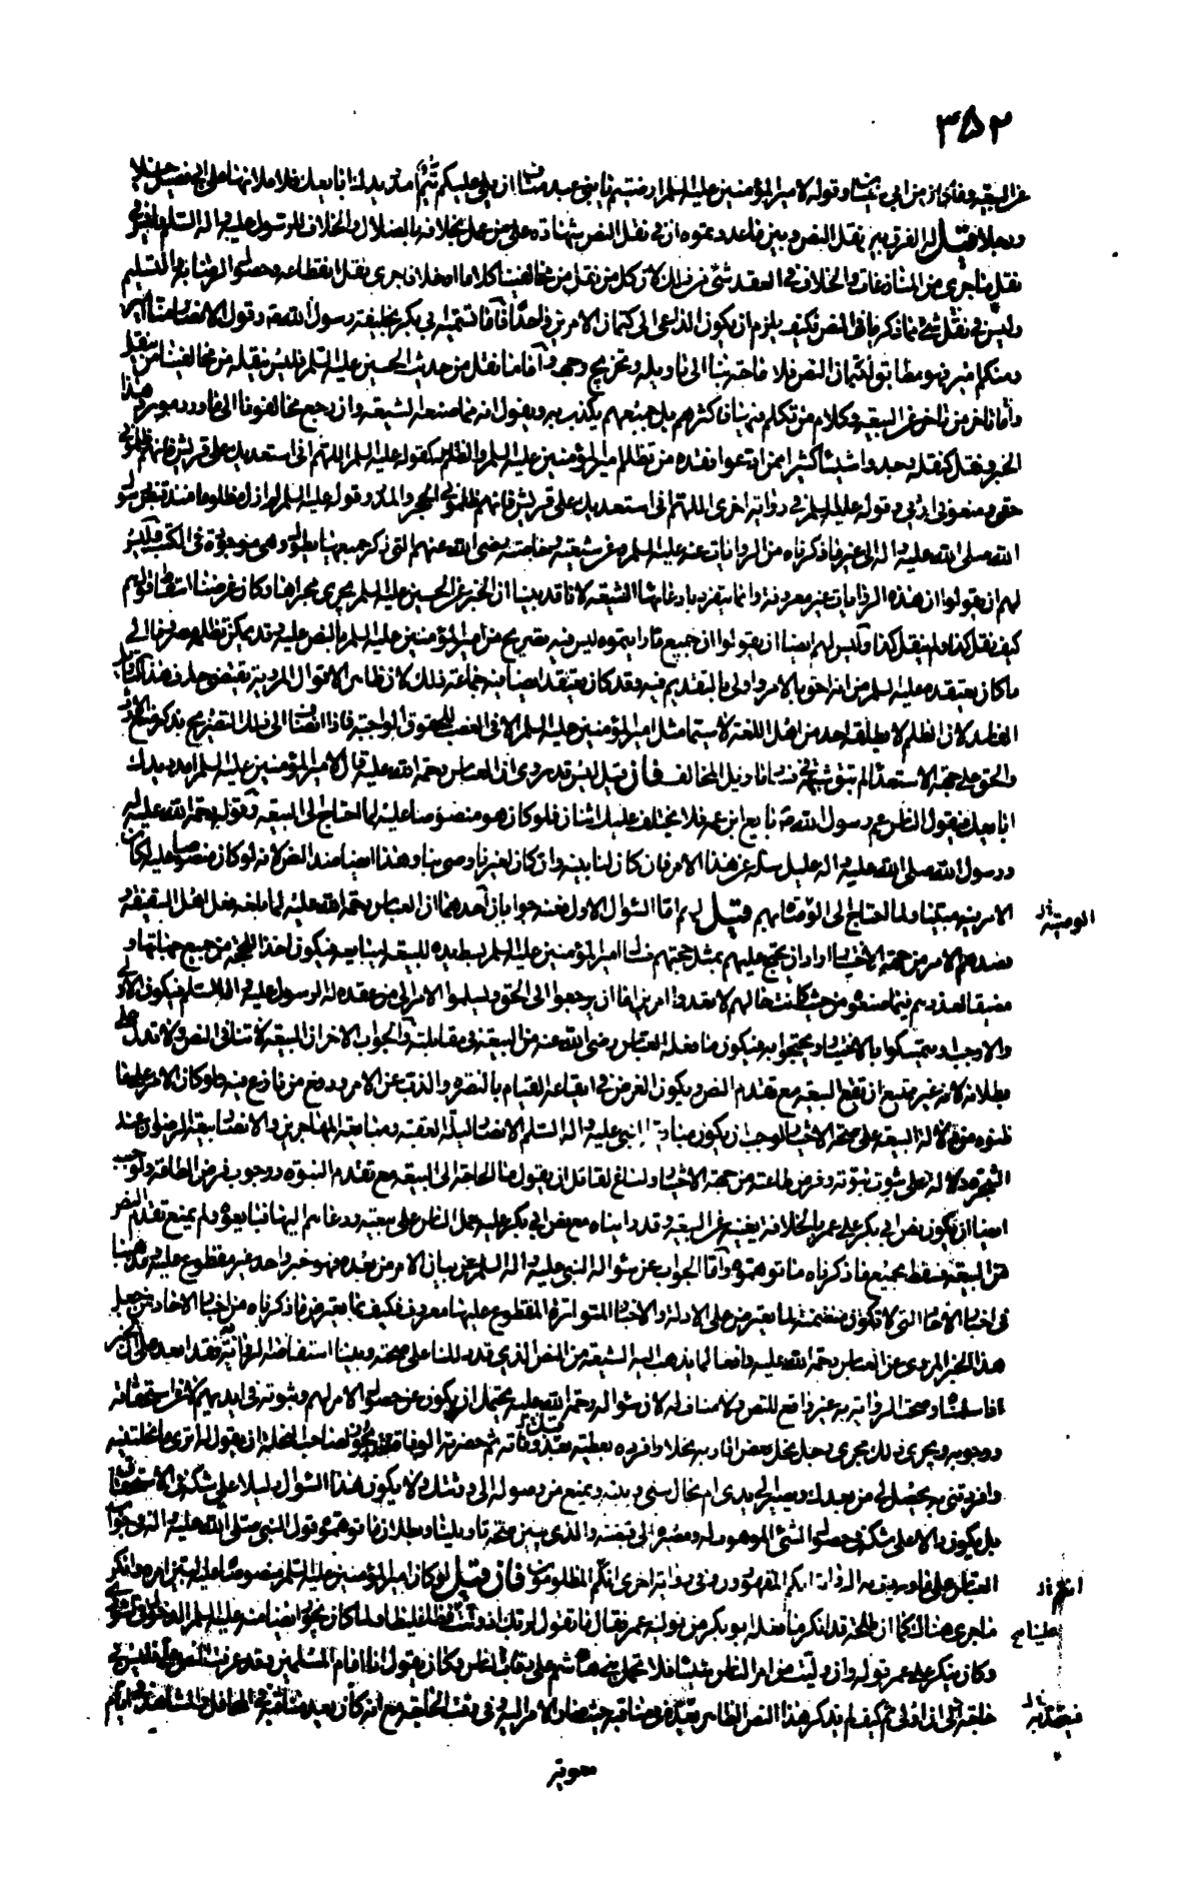 ٣٥٢
عن البيعة وما جرى من ابي سفيان وقوله لامير المؤمنين عليه السلم ارضيتم يا بني عبد مناف ان يلي عليكم تيم امدد يدك ابايعك فلاملانها على ابي فصيل خيلا
ورجلا قيل له الفرق بين نقل النص وبين ما عددتموه ان في نقل النص شهادة على من عمل بخلافه بالضلال والخلاف للرسول عليه واله السلم وليس في
نقل ما جرى من المنازعات والخلاف في العقد شيء من ذلك لان كل من نقل من مخالفينا كلاما او خلافا جرى نقل انقطاعه وحصول الرضا بعده والتسليم
وليس في نقل شيء مما ذكر ما في النص فكيف يلزم ان يكون الداعي الى كتمان الامرين واحدا فاما تسمية ابي بكر بخليفة رسول الله صه وقول الانصار منا امير
ومنكم امير فهو مطابق لكتمان النص فلا حاجة بنا الى تاويله وتخريج وجهه واما ما نقل من حديث الحسين عليه السلم فليس ينقله من مخالفينا من ينقل
واما تاخر من تاخر عن البيعة وكلام من تكلم فيها فاكثرهم بل جميعهم يكذب به ويقول انه مما صنعه الشيعة وان رجع مخالفونا الى ما وردوه من هذا
الخبر ونقل كنقله وجدوا شيئا كثيرا مما ادعوا فقده من تظلم امير المؤمنين عليه السلم والظاهر كقوله عليه السلم اللهم اني استعديك على قريش فانهم ظلموني
حقي ومنعوني ارثي وقوله عليه السلم في رواية اخرى اللهم اني استعديك على قريش فانهم ظلموني الحجر والمدر وقوله عليه السلم لم ازل مظلوما منذ قبض رسول
الله صلى الله عليه واله الى غير ما ذكرناه من الروايات عنه عليه السلم وعن شيعته وخاصته رضى الله عنهم التي ذكر جميعها يطول وهي موجودة في الكتب وليس
لهم ان يقولوا ان هذه الروايات غير معروفة وانما يتفرد بادعائها الشيعة لانا قد بينا ان الخبر عن الحسين عليه السلم يجري مجراها وكان غرضنا اسقاط قولهم
كيف نقل كذا ولم ينقل كذا وليس لهم ايضا ان يقولوا ان جميع ما رايتموه ليس فيه تصريح من امير المؤمنين عليه السلم بالنص عليه وقد يمكن تظلمه مصروفا الى
ما كان يعتقده عليه السلم من انه احق بالامر واولى بالتقديم فيه وقد كان يعتقد ايضا فيه جماعة ذلك لان ظاهر الاقوال المروية يقتضي خلاف هذا التاويل
الفاسد لان الظلم لا يطلقه احد من اهل اللغة لا سيما مثل امير المؤمنين عليه السلم الا في الغصب للحقوق الواجبة فاذا انضاف الى ذلك التصريح بذكر
والحق على جهة الاستعداء لم تبق شبهة في فساد تاويل المخالف فان قيل اليس قد روى ان العباس رحمة الله عليه قال لامير المؤمنين عليه السلم امدد يدك
ابايعك فيقول الناس عم رسول الله صه بايع ابن عمه فلا يختلف عليك اثنان فلو كان هو منصوصا عليه لما احتاج الى البيعة وقوله رحمة الله عليه له
ورسول الله صلى الله عليه واله عليل سله عن هذا الامر فان كان لنا بينه وان كان لغيرنا وصى بنا وهذا ايضا ضد النص لانه لو كان منصوصا عليه لكان
الامر فيه مبينا ولما احتاج الى الوصاة بهم قيل لهم اما السؤال الاول فعنه جوابان احدهما ان العباس رحمة الله عليه لما بلغه فعل اهل السقيفة و
قصدهم الامر من جهة الاختيار اراد ان يحتج عليهم بمثل حجتهم فسال امير المؤمنين عليه السلم بسط يده للبيعة ليبايعه فيكون اخذا للحجة من جميع جهاتها و
مضيقا لعذرهم فيما صنعوه من حيث كانت حالهم لا تعدو امرين اما ان يرجعوا الى الحق ويسلموا الامر الى من عقده له الرسول عليه واله السلم فيكون الاولى
والاوجب او يتمسكوا بالاختيار ويحتجوا به فيكون ما فعله العباس رضى الله عنه من البيعة في مقابلته والجواب الاخر ان البيعة لا تنافي النص ولا تدل على
بطلانه لانه غير ممتنع ان تقع البيعة مع تقدم النص ويكون الغرض في ايقاعها القيام بالنصرة والذب عن الامر ودفع من نازع فيه ولو كان الامر على ما
ظنوه من دلالة البيعة على صحة الاختيار لوجب ان يكون مبايعة النبي عليه واله السلم الانصار ليلة العقبة ومبايعة المهاجرين والانصار بيعة الرضوان عند
الشجرة دلالة على ثبوت نبوته وفرض طاعته من جهة الاختيار ولساغ لقائل ان يقول ما الحاجة الى البيعة مع تقدم النبوة ووجوب فرض الطاعة ولوجب
ايضا ان يكون نص ابي بكر على عمر بالخلافة يغنيه عن البيعة وقد راينا مع نص ابي بكر عليه حمل الناس على بيعته ودعاهم اليها فبايعوه ولم يمنع تقدم النص
من البيعة فسقط بجميع ما ذكرناه ما توهموه واما الجواب عن سؤاله النبي عليه واله السلم عن بيان الامر من بعده فهو خبر واحد غير مقطوع عليه ومذهبنا
في اخبار الاحاد التي لا تكون متضمنة لما يعترض على الادلة والاخبار المتواترة المقطوع عليها معروف فكيف بما يعترض ما ذكرناه من اخبار الاحاد فمن جعل
هذا الخبر المروى عن العباس رحمة الله عليه دافعا لما يذهب اليه الشيعة من النص الذي قد دللنا على صحته وبينا استفاضة الرواية به فقد ابعد على ان الخبر
اذا سلمناه وصحت الرواية به غير دافع للنص ولا مناف له لان سؤاله رحمة الله عليه يحتمل ان يكون عن حصول الامر لهم وثبوته في ايديهم لا عن استحقاقه
ووجوبه ويجري ذلك مجرى رجل نحل بعض اقاربه نحلا وافرده بعطية بعد وفاته ثم حضرته الوفاة فقد يجوز لصاحب النحلة ان يقول له اترى ما نحلتنيه
وافردتني به يحصل لي من بعدك ويصير الى يدي ام يحال بيني وبينه ويمنع من وصوله الى ورثتك ولا يكون هذا السؤال دليلا على شكه في الاستحقاق
بل يكون دالا على شكه في حصول الشيء الموهوب له ومصيره الى قبضته والذي يبين صحة تاويلنا وبطلان ما توهموه قول النبي صلى الله عليه واله في جواب
العباس على ما وردت به الرواية انكم المقهورون وفي رواية اخرى انكم المظلومون فان قيل لو كان امير المؤمنين عليه السلم منصوصا عليه وانكر
ما جرى هناك كما ان طلحة قد انكر ما فعله ابو بكر من توليته عمر فقال ما تقول لربك اذ وليت فظا غليظا ولما كان يجوز ايضا منه عليه السلم الدخول في الشورى
وكان ينكر على عمر قوله وان وليت من امر الناس شيئا فلا تحمل بني هاشم على رقاب الناس وكان يقول انا امام المسلمين وقد عرفت النص على فليس بي
حاجة الى ان اولى ثم كيف لم يذكر هذا النص الظاهر في مناقبه حيث صار الامر اليه وفي وقت الحاجة مع انه كان يعيد مناقبه في المحافل والمشاهد وفي ايام
سوتر
الوصية
علينا